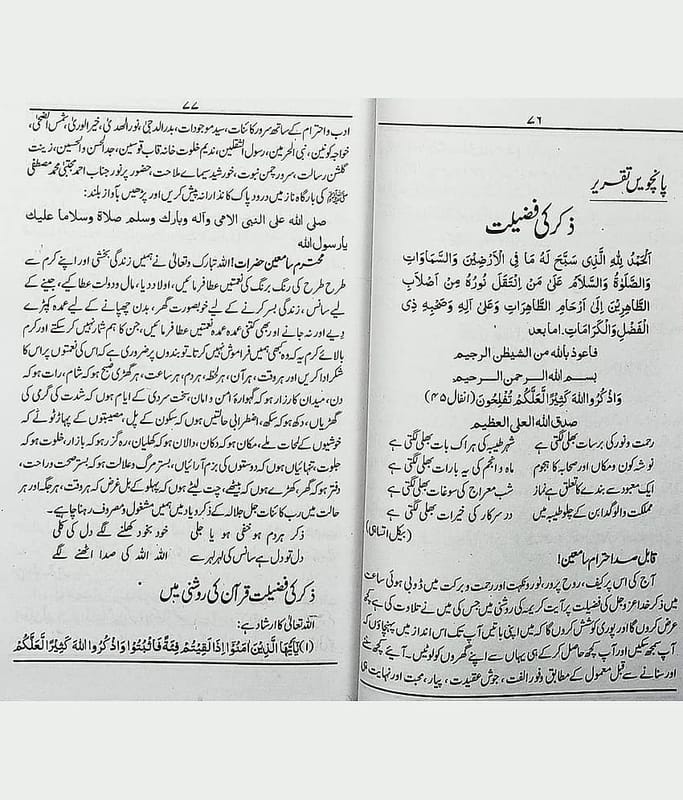 ۷۶
پانچویں تقریر
ذکر کی فضیلت
اَلْحَمْدُ لِلّٰہِ الَّذِی سَبَّحَ لَہٗ مَا فِی الْاَرْضِیْنَ وَالسَّمَاوَاتِ
وَالصَّلٰوۃُ وَالسَّلَامُ عَلٰی مَنْ اِنْتَقَلَ نُوْرُہٗ مِنْ اَصْلَابِ
الطَّاھِرِیْنَ اِلٰی اَرْحَامِ الطَّاھِرَاتِ وَعَلٰی اٰلِہٖ وَصَحْبِہٖ ذِی
الْفَضْلِ وَالْکَرَامَاتِ. اما بعد
فاعوذ باللہ من الشیطٰن الرجیم
بسم اللہ الرحمن الرحیم
وَاذْکُرُوا اللہَ کَثِیْرًا لَّعَلَّکُمْ تُفْلِحُوْنَ (انفال ۴۵)
صدق اللہ العلی العظیم
رحمت و نور کی برسات بھلی لگتی ہے شہر طیبہ کی ہر اک بات بھلی لگتی ہے
نوشہ کون و مکاں اور صحابہ کا ہجوم ماہ و انجم کی یہ بارات بھلی لگتی ہے
ایک معبود سے بندے کا تعلق ہے نماز شب معراج کی سوغات بھلی لگتی ہے
مملکت والو گدا بن کے چلو طیبہ میں در سرکار کی خیرات بھلی لگتی ہے
(بیکل اتساہی)
قابل صد احترام سامعین!
آج کی اس پر کیف، روح پرور، نور و نکہت اور رحمت و برکت میں ڈوبی ہوئی ساعت
میں ذکر خدا عزوجل کی فضیلت پر آیت کریمہ کی روشنی میں جس کی میں نے تلاوت کی ہے کچھ
عرض کروں گا اور پوری کوشش کروں گا کہ میں اپنی باتیں آپ تک اس انداز میں پہنچاؤں کہ
آپ سمجھ سکیں اور آپ کچھ حاصل کر کے ہی یہاں سے اپنے گھروں کو لوٹیں۔ آیئے کچھ سننے
اور سنانے سے قبل معمول کے مطابق وفور الفت، جوش عقیدت، پیار، محبت اور نہایت ہی
۷۷
ادب و احترام کے ساتھ سرور کائنات، سید موجودات، بدر الدجیٰ، نور الھدیٰ، خیر الوریٰ، شمس الضحیٰ،
خواجہ کونین، نبی الحرمین، رسول الثقلین، ندیم خلوت خانہ قاب قوسین، جد الحسن والحسین، زینت
گلشن رسالت، سرور چمن نبوت، خورشید سمائے ملاحت، حضور پر نور جناب احمد مجتبیٰ محمد مصطفی
ﷺ کی بارگاہ ناز میں درود پاک کا نذرانہ پیش کریں اور پڑھیں باٰواز بلند:
صلی اللہ علی النبی الامی وآلہ وبارک وسلم صلاۃ وسلاما علیک
یا رسول اللہ
محترم سامعین حضرات! اللہ تبارک و تعالیٰ نے ہمیں زندگی بخشی اور اپنے کرم سے
طرح طرح کی رنگ برنگ کی نعمتیں عطا فرمائیں، اولاد دیا، مال و دولت عطا کیے، جینے کے
لیے سانس، زندگی بسر کرنے کے لیے خوبصورت گھر، بدن چھپانے کے لیے عمدہ کپڑے
دیے اور نہ جانے اور بھی کتنی عمدہ عمدہ نعمتیں عطا فرمائیں، جن کا ہم شمار نہیں کر سکتے اور کرم
بالائے کرم یہ کہ وہ کبھی ہمیں فراموش نہیں کرتا۔ تو بندوں پر ضروری ہے کہ اس کی نعمتوں پر اس کا
شکر ادا کریں اور ہر وقت، ہر آن، ہر لحظہ، ہر دم، ہر ساعت، ہر گھڑی صبح ہو کہ شام، رات ہو کہ
دن، میدان کارزار ہو کہ گہوارۂ امن و امان، سخت سردی کے ایام ہوں کہ شدت کی گرمی کی
گھڑیاں، دکھ ہو کہ سکھ، اضطرابی حالتیں ہوں کہ سکون کے پل، مصیبتوں کے پہاڑ ٹوٹے کہ
خوشیوں کے لمحات ملے، مکان ہو کہ دکان، دالان ہو کہ کھلیان، رہ گزر ہو کہ بازار، خلوت ہو کہ
جلوت، تنہائیاں ہوں کہ دوستوں کی بزم آرائیاں، بستر مرگ و علالت ہو کہ بستر صحت و راحت،
دفتر ہو کہ گھر، کھڑے ہوں کہ بیٹھے، چت لیٹے ہوں کہ پہلو کے بل غرض کہ ہر وقت، ہر جگہ اور ہر
حالت میں رب کائنات جل جلالہ کے ذکر و یاد میں ہمیں مشغول و مصروف رہنا چاہیے۔
ذکر ہر دم ہو خفی ہو یا جلی خود بخود کھلنے لگے دل کی کلی
دل تو دل ہے سانس کی لہر لہر سے اللہ اللہ کی صدا اٹھنے لگے
ذکر کی فضیلت قرآن کی روشنی میں
اللہ تعالیٰ کا ارشاد ہے:
(۱) یٰاَیُّھَا الَّذِیْنَ اٰمَنُوْا اِذَا لَقِیْتُمْ فِئَۃً فَاثْبُتُوْا وَاذْکُرُوا اللہَ کَثِیْرًا لَّعَلَّکُمْ